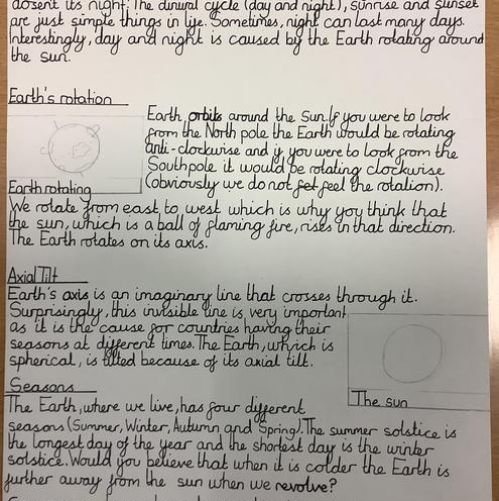 absent its night. The diurnal cycle (day and night), sunrise and sunset
are just simple things in life. Sometimes, night can last many days.
Interestingly, day and night is caused by the Earth rotating around
the sun.
Earth's rotation
Earth orbits around the Sun. If you were to look
from the North pole the Earth would be rotating
anti-clockwise and if you were to look from the
South pole it would be rotating clockwise
(obviously we do not feel the rotation).
Earth rotating
We rotate from east to west which is why you think that
the sun, which is a ball of flaming fire, rises in that direction.
The Earth rotates on its axis.
Axial Tilt
Earth's axis is an imaginary line that crosses through it.
Surprisingly, this invisible line is very important
as it is the cause for countries having their
seasons at different times. The Earth, which is
spherical, is tilted because of its axial tilt.
The sun
Seasons
The Earth, where we live, has four different
seasons (Summer, Winter, Autumn and Spring). The summer solstice is
the longest day of the year and the shortest day is the winter
solstice. Would you believe that when it is colder the Earth is
further away from the sun when we revolve?